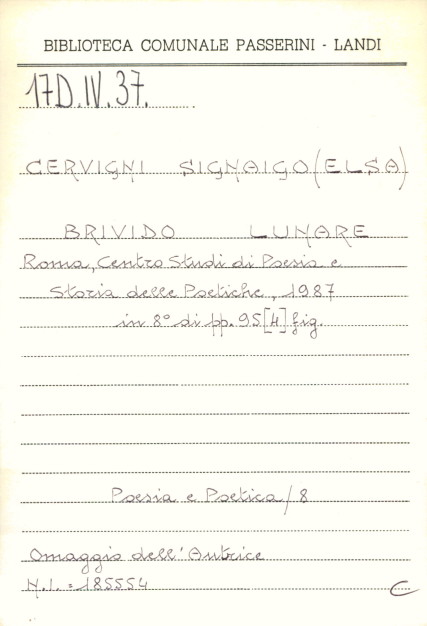 BIBLIOTECA COMUNALE PASSERINI - LANDI
17D.IV.37.
CERVIGNI SIGNAIGO (ELSA)
BRIVIDO LUNARE
Roma, Centro Studi di Poesia e
Storia delle Poetiche, 1987
in 8° di pp. 95[4] fig.
Poesia e Poetica/8
Omaggio dell'Autrice
N.I. = 185554
C